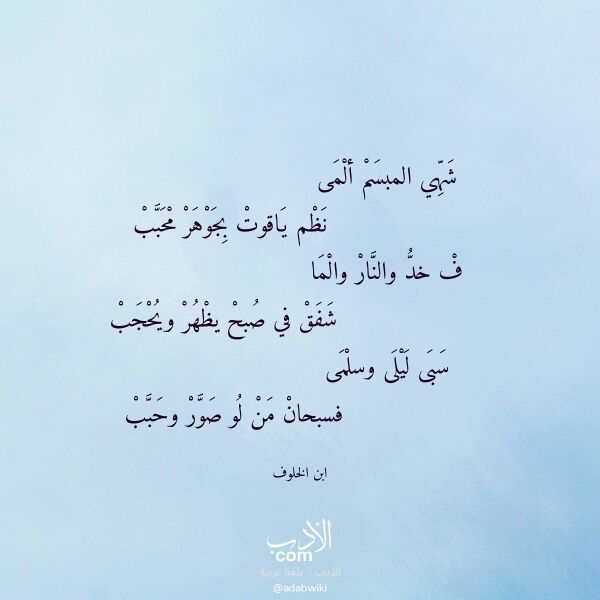 شَهِّي المبسَمْ ألْمَى
نَظْم يَاقوتْ بِجَوْهَرْ مْحَبَّبْ
فْ خدُّ والنَّارْ والْمَا
شَفَقْ في صُبحْ يظْهُرْ ويُحْجَبْ
سَبَى لَيْلَى وسلْمَى
فسبحانْ مَنْ لُو صَوَّرْ وحَبَّبْ
ابن الخلوف
الأدب
com
الأدب .. بلغة عربية
@adabwiki